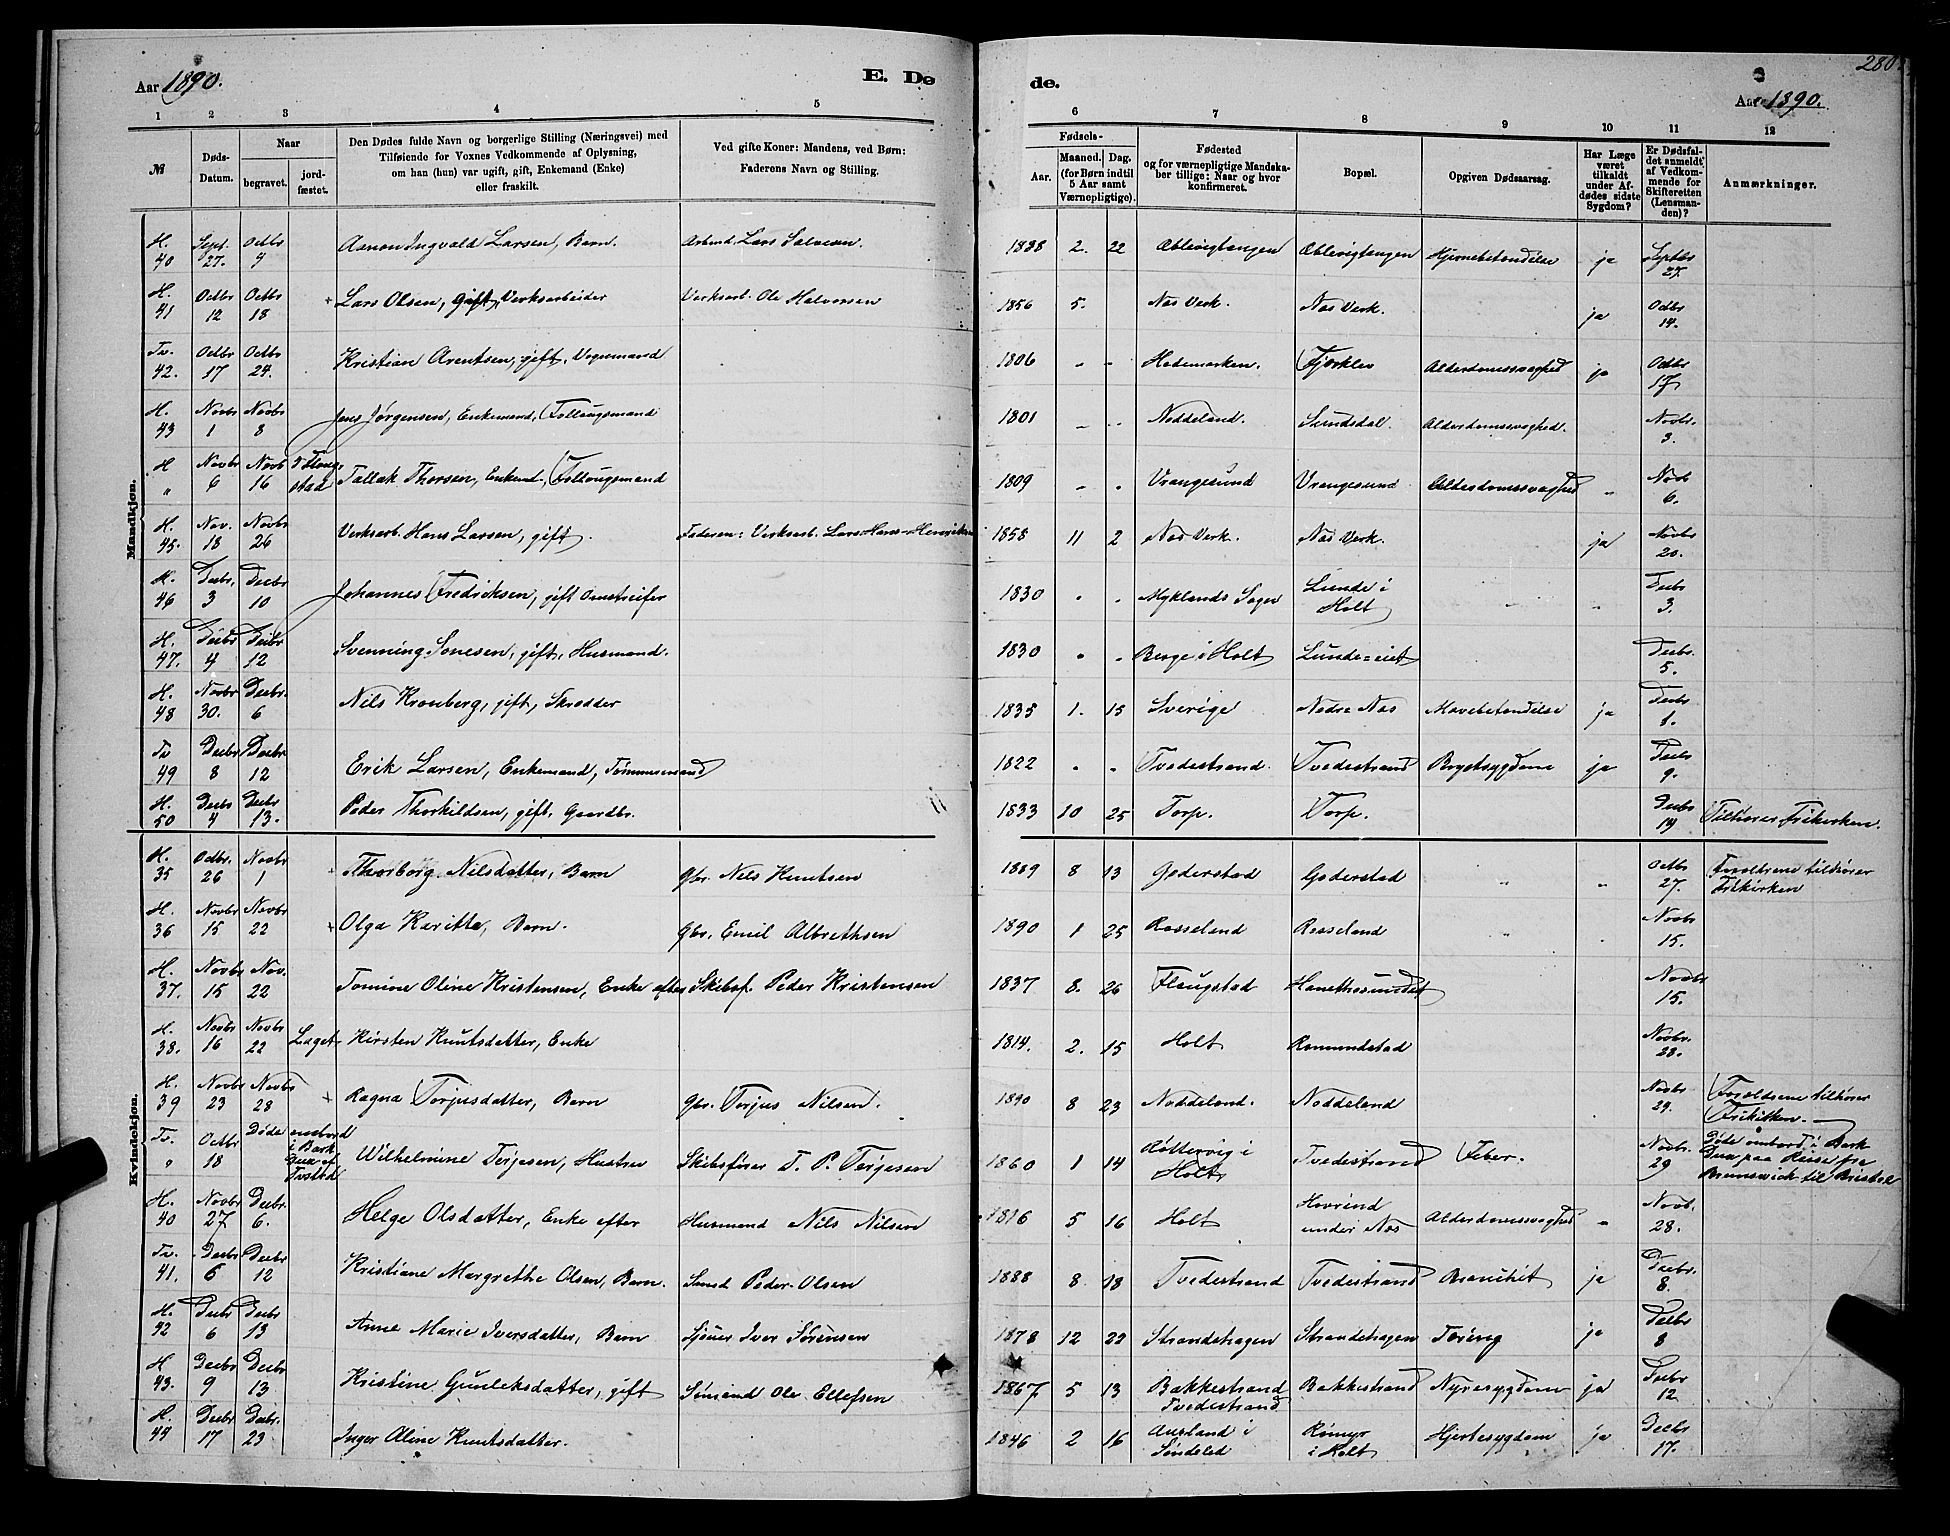 280
Aar 1890. E. Dø de. Aar 1890.
1 2 3 4 5 6 7 8 9 10 11 12
№ Døds-Datum. Naar begravet. jordfæstet. Den Dødes fulde Navn og borgerlige Stilling (Næringsvei) med Tilføiende for Voxnes Vedkommende af Oplysning, om han (hun) var ugift, gift, Enkemand (Enke) eller fraskilt. Ved gifte Koner: Mandens, ved Børn: Faderens Navn og Stilling. Fødsels- Aar. Maaned. Dag. (for Børn indtil 5 Aar samt Værnepligtige). Fødested og for værnepligtige Mandskaber tillige: Naar og hvor konfirmeret. Bopæl. Opgiven Dødsaarsag. Har Læge været tilkaldt under Afdødes sidste Sygdom? Er Dødsfaldet anmeldt af Vedkommende for Skifteretten (Lensmanden)? Anmærkninger.
Mandkjøn.
H. 40 Sept. 27. Octbr 4 Ingvald Larsen, Barn. Arbeid. Lars Salvesen. 1888 2. 22 Æblevigtangen Æblevigtangen Hjernebetændelse ja Septbr 27.
H. 41 Octbr 12 Octbr 18 + Lars Olsen, gift, Verksarbeider Verksarb. Ole Halvorsen 1856 5. Næs Verk. Næs Verk. ja Octbr 14.
Tv. 42. Octbr 17 Octbr 24. Kristian Arentsen, gift, Vognmand 1806 " " Hedemarken. Fjærklev Alderdomssvaghed ja Octbr 17
H. 43 Novbr 1 Novbr 8 Jens Jørgensen, Enkemand, Follaugsmand 1801 " " Noddeland. Sundsdal. Alderdomssvaghed. Novbr. 3.
H " Novbr 6 Novb 16 Flougstad Tallak Thorsen, Enkemd., Follaugsmand 1809 " " Vrangesund Vrangesund Alderdomssvaghed " Novb 6.
H. 45. Nov. 18 Novbr 26 Verksarb. Hans Larsen, gift. Faderen: Verksarb. Lars Hans. 1858 11 2 Næs Verk. Næs Verk. ja Novbr 20.
H. 46 Decbr, 3 Decbr 10 Johannes Fredriksen, gift Omstreifer 1830 " " Myklands Sogn Lunde i Holt " Decbr 3.
H. 47. Decbr 4 Decbr 12 Svenning Jonesen, gift, Husmand. 1830 " " Berge i Holt Lunde=eiet Decbr. 5.
H. 48 Novbr 30. Decbr. 6 Nils Kronberg, gift, Skrædder 1835 1. 15 Sverige Nedre Næs Mavebetændelse ja Decbr 1.
Tv 49 Decbr 8 Decbr 12 Erik Larsen, Enkemand, Tømmermand 1822 " " Tvedestrand. Tvedestrand Brystsygdom ja Decbr 9.
H. 50 Decbr 4 Decbr 13. Peder Thorkildsen, gift, Gaardbr. 1833 10 25 Torp. Torp. Decbr 14 Tilhører Frikirken.
Kvindekjøn.
H. 35 Octbr. 26 Novbr 1 Thorborg Nilsdatter, Barn gbr. Nils Knutsen 1889 8 13 Goderstad Goderstad " " Octbr 27. Forældrene tilhører Frikirken
H. 36 Novbr 15 Novbr 22 + Olga Karitta, Barn. gbr. Emil Albrethsen 1890 1 25 Rosseland Rosseland " Novbr 15.
H. 37. Novbr 15 Nov. 22 Tomine Oline Kristensen, Enke efter Skibsf. Peder Kristensen 1837 8. 26 Flougstad Novbr 15.
H. 38. Novbr 16 Novbr 22 Laget Kirsten Knutsdatter, Enke 1814. 2. 15 Holt Romundstad Novbr. 28.
H. 39 Novbr 23 Novbr 28 + Ragna Torjusdatter, Barn gbr. Torjus Nilsen. 1890 8 23 Noddeland. Noddeland Novbr 29. Forældrene tilhører Frikirken
Tv. " Octbr 18 Døde ombord i Bark Dux af Tvstrd Wilhelmine Terjesen, Hustru Skibsfører T. P. Terjesen 1860 1 14 i Holt Tvedestrand Feber. Novbr. 29 Døde ombord i Bark Dux paa Reise fra Brunswick til Bristol
H. 40 Novbr 27 Decbr. 6. Helge Olsdatter, Enke efter Husmand Nils Nilsen 1816 5 16 Holt under Næs Alderdomssvaghed " Novb. 28.
Tv. 41. Decbr 6 Decbr 12 Kristiane Margrethe Olsen, Barn. Sømd Peder Olsen 1888 8. 18 Tvedestrand Tvedestrand Bronchit ja Decbr. 8.
H. 42 Decbr 6 Decbr 13 Anne Marie Iversdatter, Barn Iver Sørensen 1878 12 22 Strandehagen Strandehagen Tæring ja Decbr 8
H 43. Decbr 9 Decbr 13 Kristine Gunleksdatter, gift Sømand Ole Ellefsen 1867 5 13 Bakkestrand Tvedestrand Bakkestrand Nyresygdom ja Decbr 12
H. 44 Decbr 17 Decbr. 23 Inger Oline Knutsdatter. 1846 2 16 i Søndeled Rømyr i Holt Hjertesygdom ja Decbr 17.